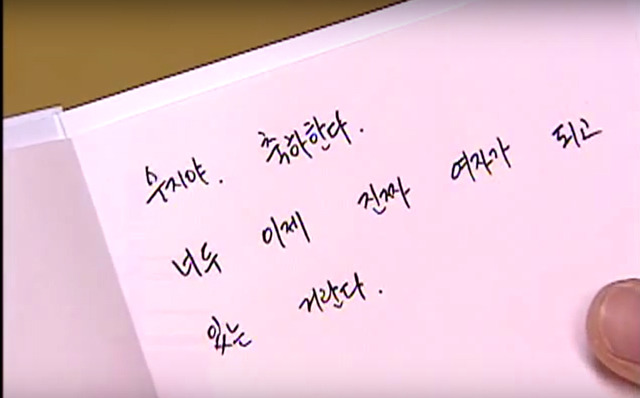 수지야. 축하한다.
너두 이제 진짜 여자가 되고
있는 거란다.